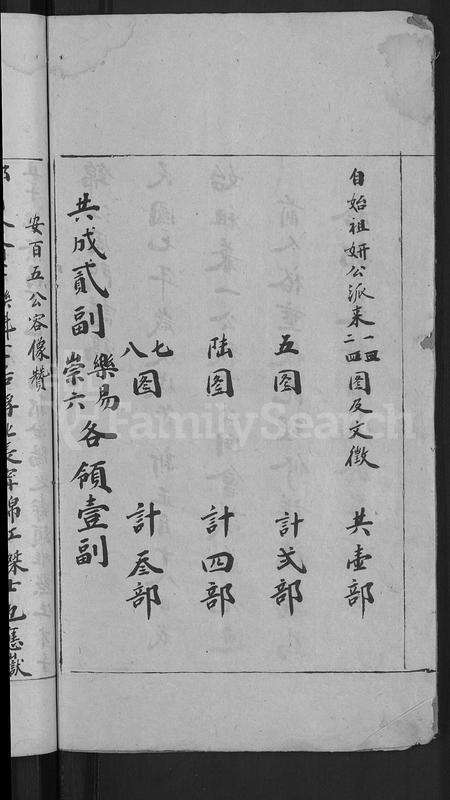 自始祖妍公派来一二三四图及文徵 共壹部
五图 計弍部
陆图 計四部
七八图 計叁部
共成貳副 樂易崇六 各領壹副
安百五公容像贊
FamilySearch